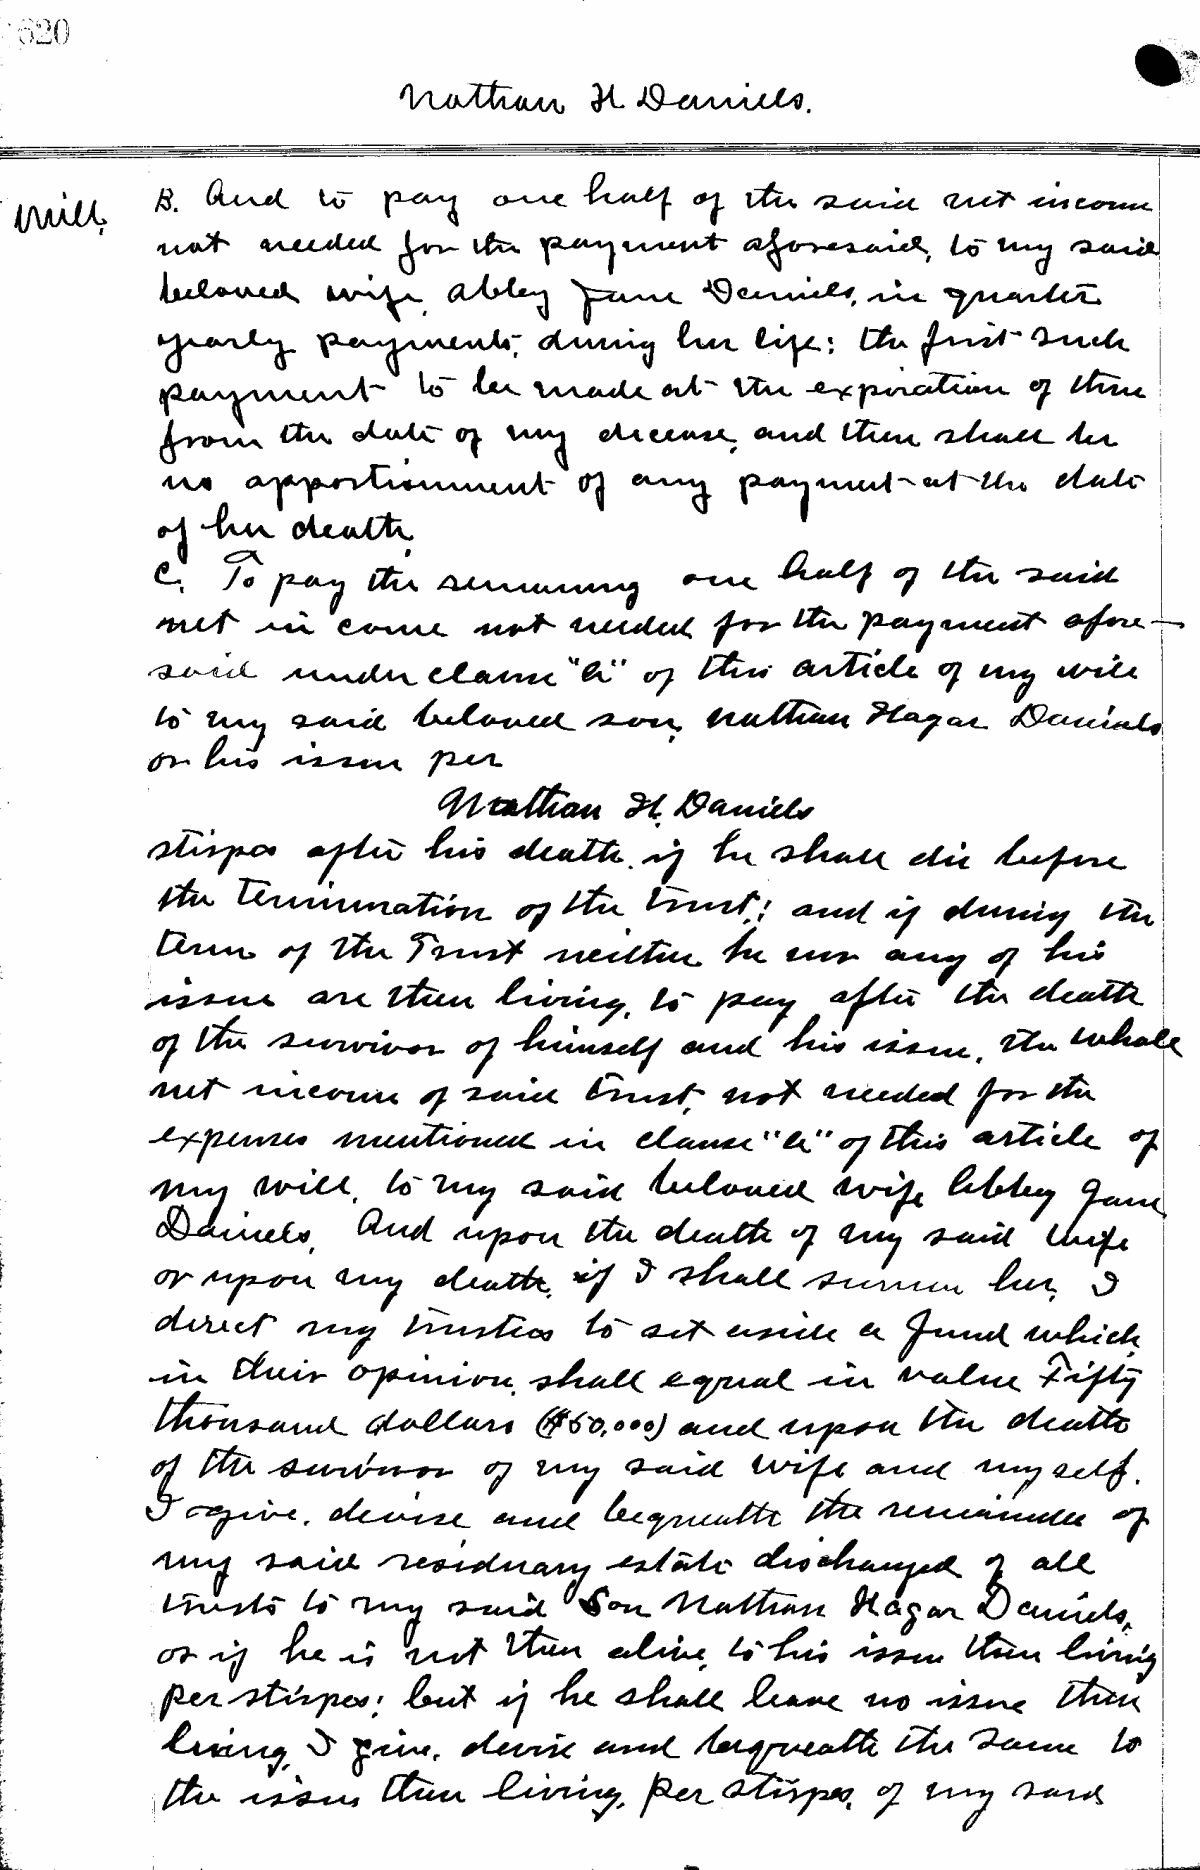 620
Nathan H Daniels.
Will.
B. And to pay one half of the said net income
not needed for the payment aforesaid, to my said
beloved wife, Abbey Jane Daniels, in quarter
yearly payments, during her life; the first such
payment to be made at the expiration of three
from the date of my decease, and there shall be
no apportionment of any payment at the date
of her death.
C. To pay the remaining one half of the said
net in come not needed for the payment afore-
said under clause "a" of this article of my will
to my said beloved son, Nathan Hagar Daniels
or his issue per
Nathan H. Daniels
stirpes after his death, if he shall die before
the termination of the trust; and if during the
term of the Trust neither he nor any of his
issue are then living, to pay after the death
of the survivor of himself and his issue, the whole
net income of said trust, not needed for the
expenses mentioned in clause "a" of this article of
my will, to my said beloved wife Abbey Jane
Daniels. And upon the death of my said wife
or upon my death, if I shall survive her, I
direct my trustees to set aside a fund which
in their opinion, shall equal in value Fifty
thousand dollars ($50,000) and upon the death
of the survivor of my said wife and myself.
I give, devise and bequeath the remainder of
my said residuary estate discharged of all
trusts to my said Son Nathan Hagar Daniels,
or if he is not then alive, to his issue then living
per stirpes; but if he shall leave no issue then
living, I give, devise and bequeath the same to
the issue then living, per stirpes, of my said